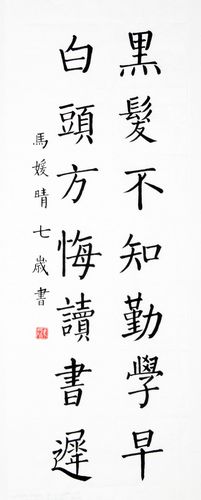 黑髮不知勤學早
白頭方悔讀書遲
馬媛晴七歲書